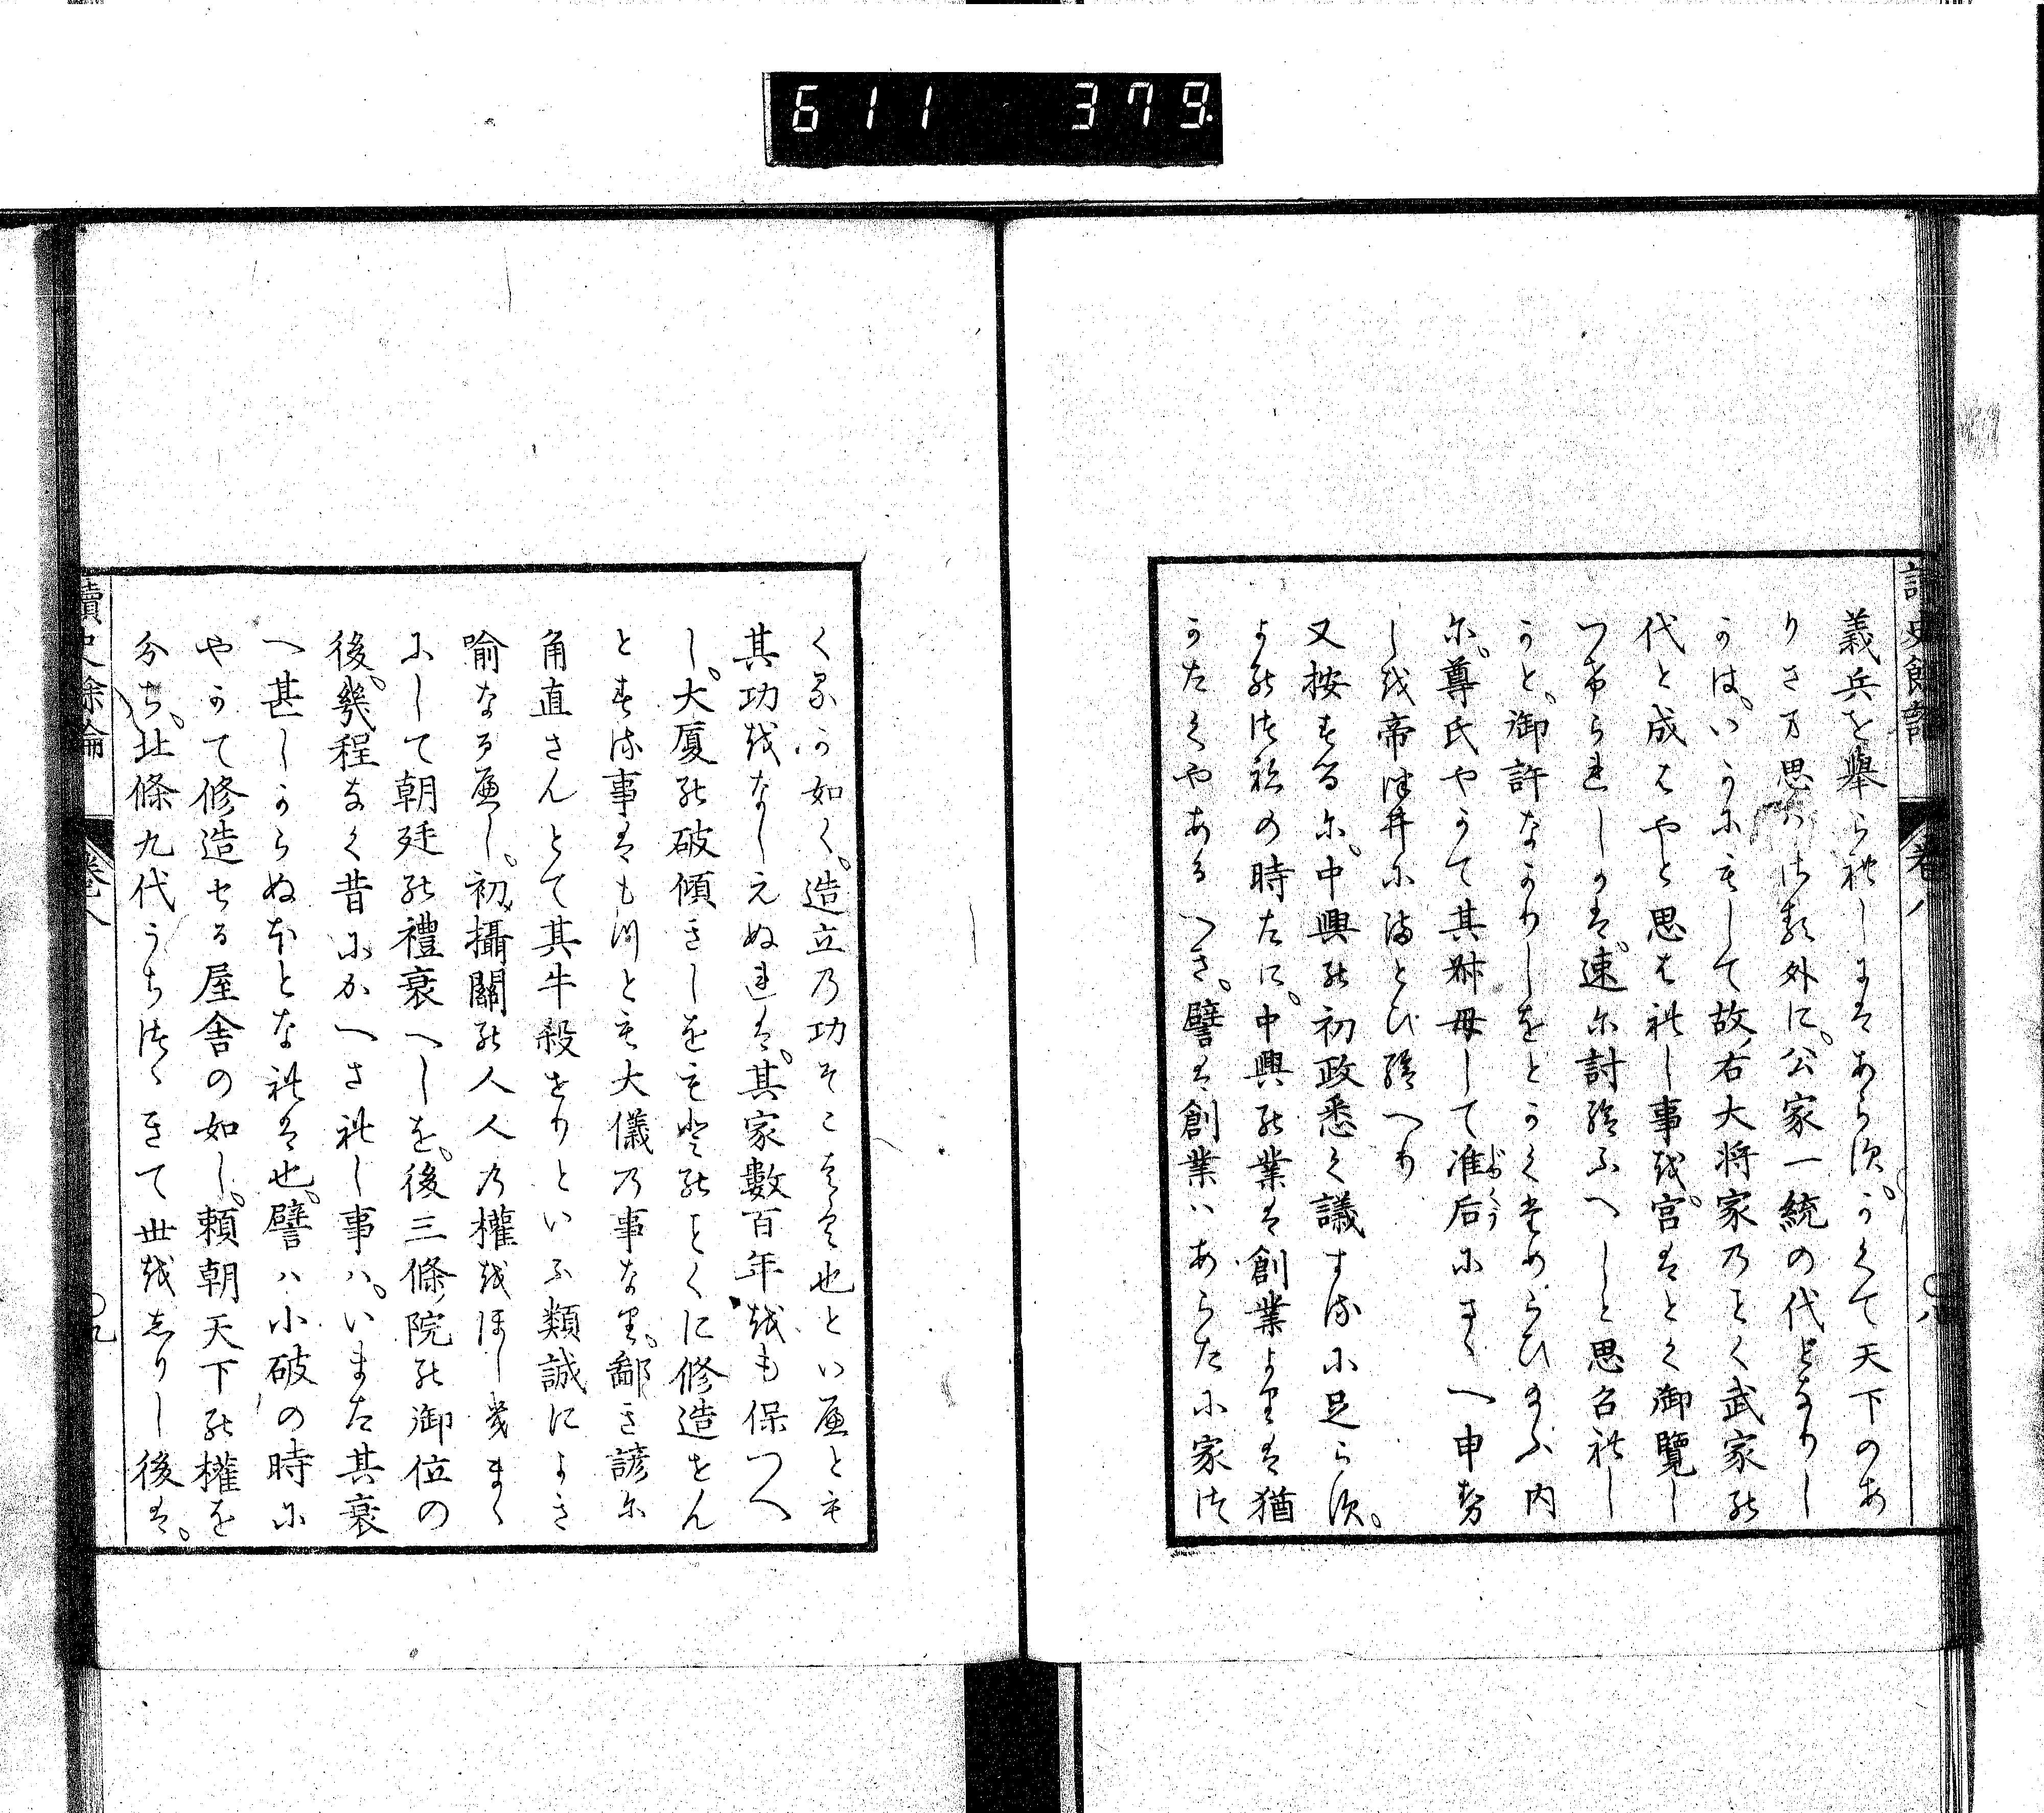 611 379
讀史餘論 卷八 〇八
義兵を擧られしにはあらす。かくて天下のあ
りさま思ひの外に。公家一統の代となりし
かは。いかにもして故右大将家のことく武家の
代と成はやと思はれし事を。宮はとく御覽し
つけられしかは。速に討給ふへしと思召れし
かと。御許なかりしをとかくためらひ給ふ内
に。尊氏やかて其繼母して准后にさゝへ申せ
しを帝
又按するに。中興の初政悉く議するに足らす。
よのつねの時たに。中興の業は創業よりは猶
かたくやあるへき。譬は創業ハあらたに家つ
くるか如く。造立の功そこはく也といへとも
其功をなしえぬれは。其家數百年をも保つへ
し。大厦の破傾きしをもとのことくに修造せん
とする事はもつとも大儀の事なり。鄙き諺に
角直さんとて其牛殺せりといふ類誠によき
喩なるへし。初攝關の人人の權をほしきまゝ
にして朝廷の禮衰へしを。後三條院の御位の
後。幾程なく昔にかへされし事ハ。いまた其衰
へ甚しからぬほとなれは也。譬ハ小破の時に
やかて修造せる屋舎の如し。頼朝天下の權を
分ち。北條九代うちつゝきて世をしりし後は。
讀史餘論 卷八 〇九